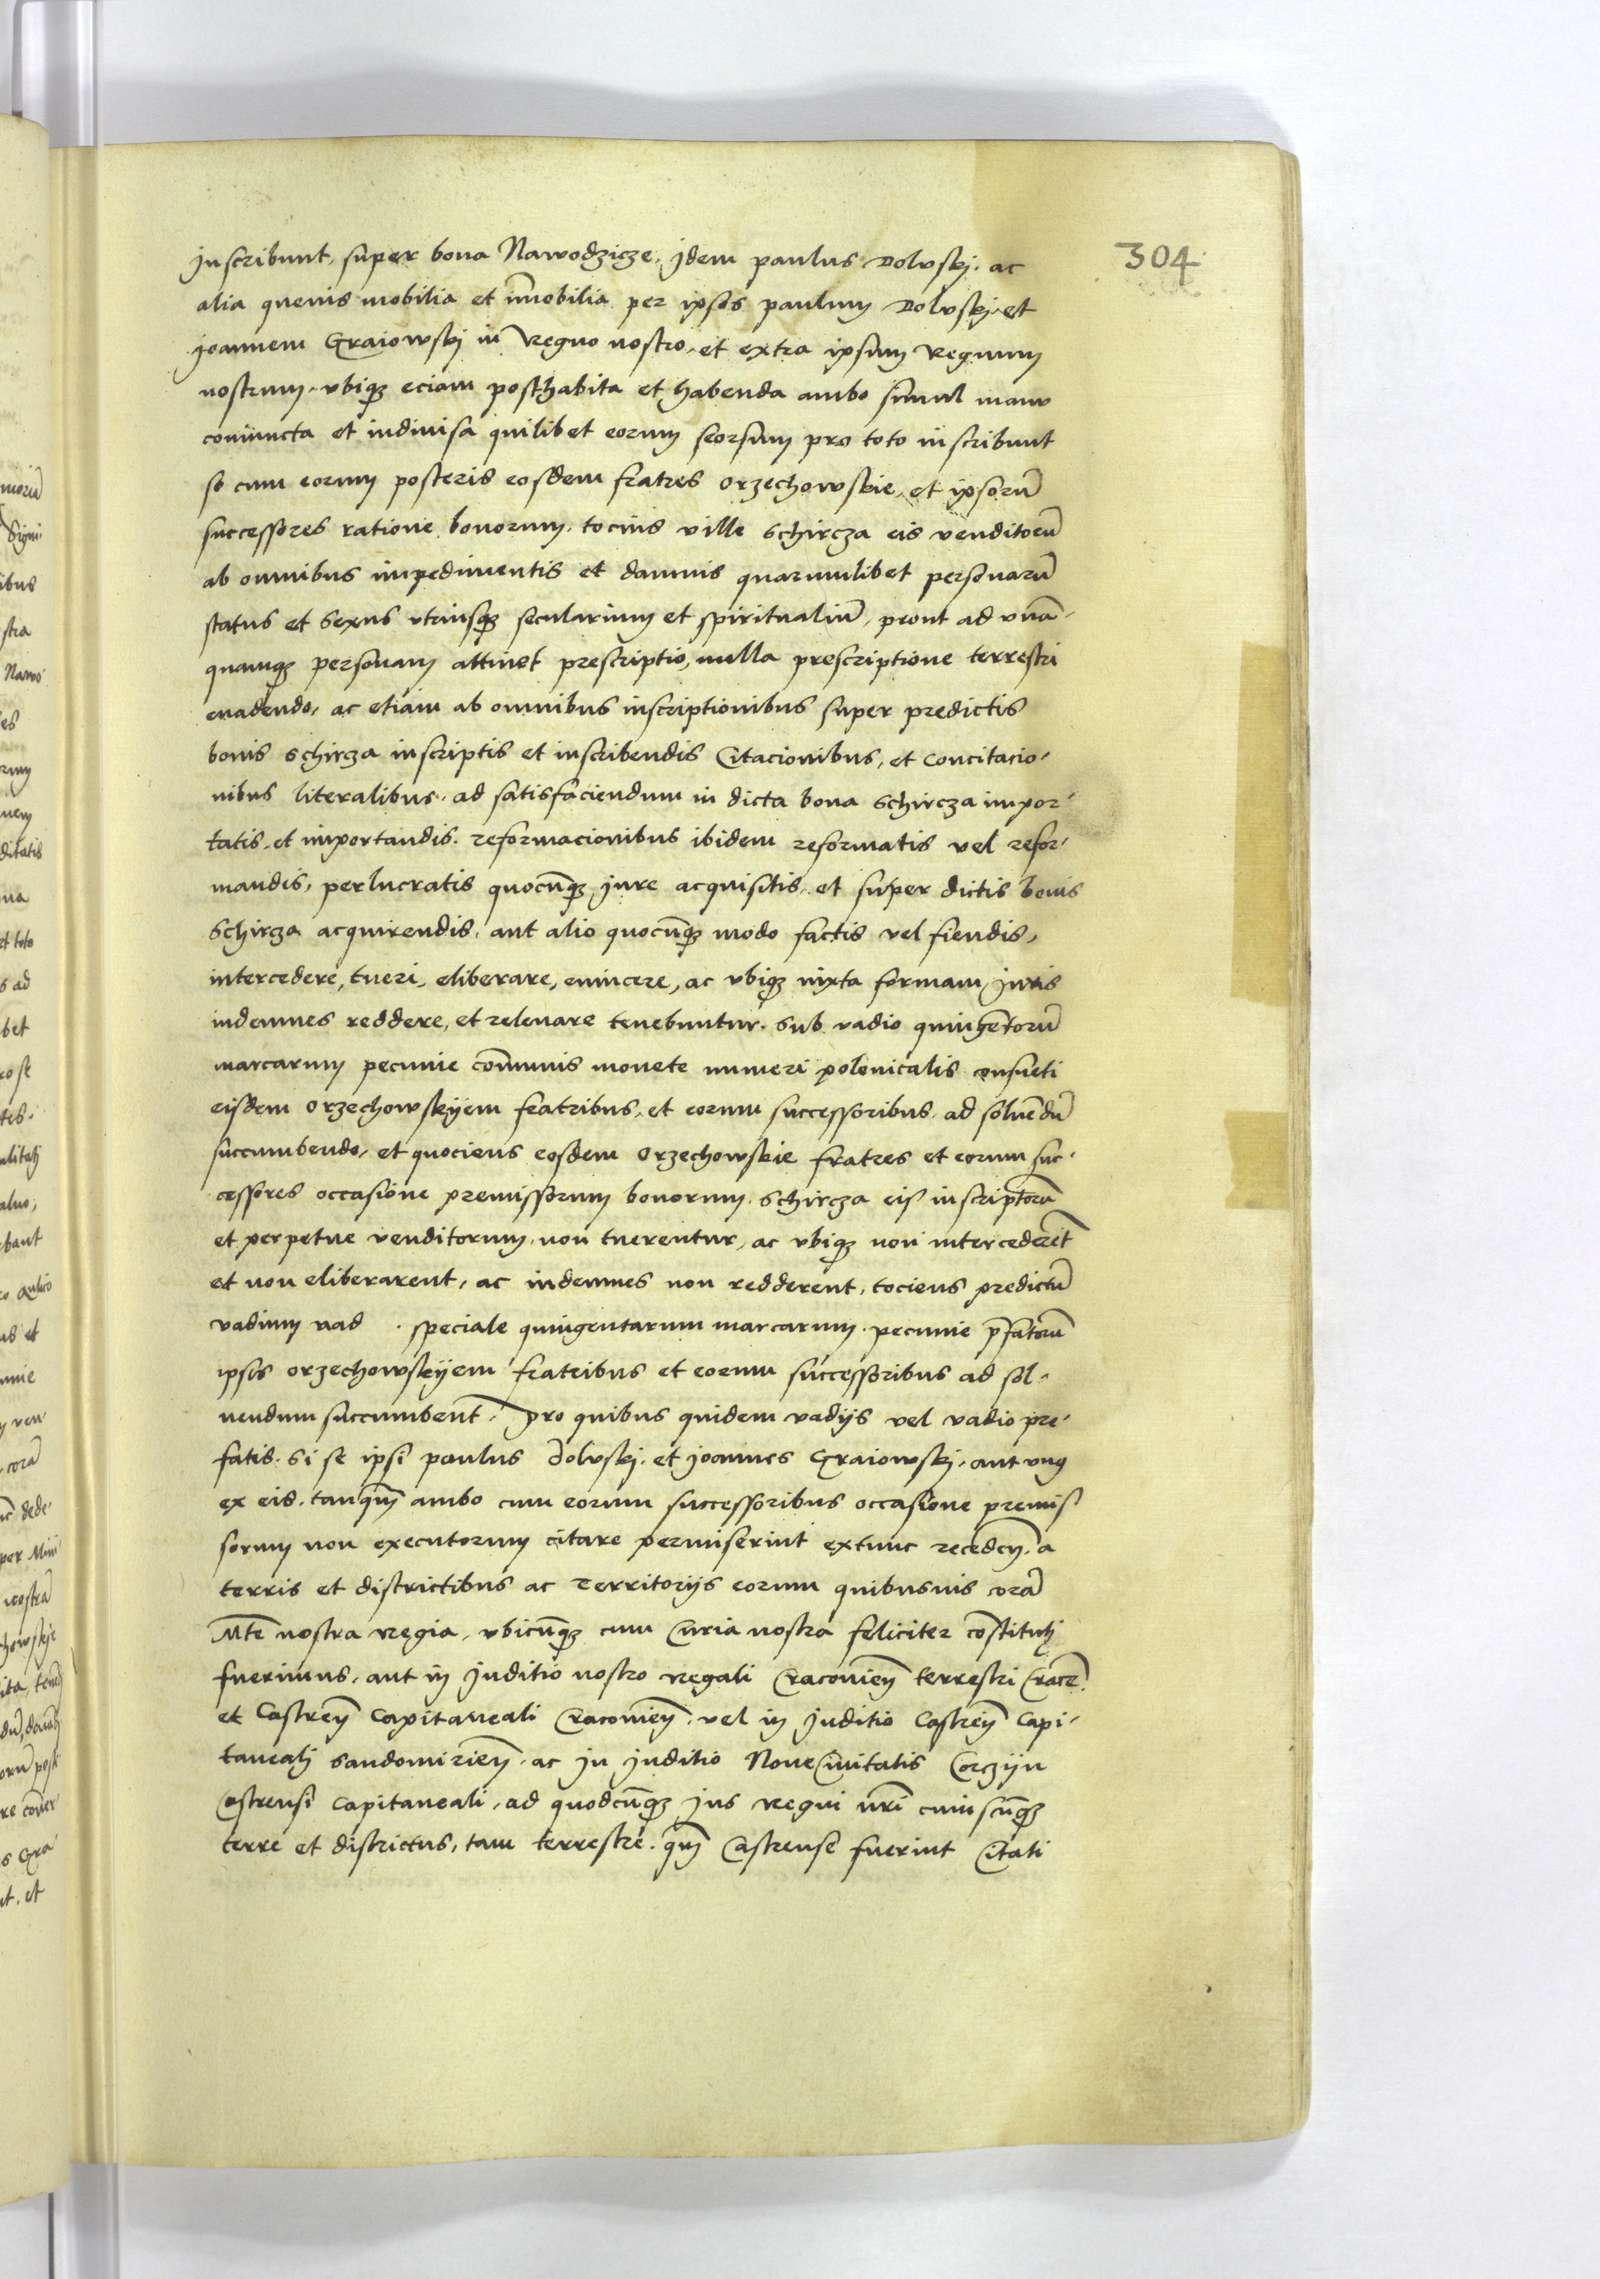 304
Inscribunt, super bona Nawodzicze, Idem paulus Dolvskj. ac
alia quevis mobilia et im̄obilia per ipsos paulum Dolvskj. et
Joannem Graiowskj in Regno nostro, et extra ipsum Regnum
nostrum, vbiq3 eciam posthabita et habenda ambo simul manu
coniuncta et indiuisa quilibet eorum seorsum pro toto inscribunt
se cum eorum posteris eosdem fratres orzechowskie, et ipsorū
successores ratione bonorum, tocius ville schircza eis venditorū
ab omnibus impedimentis et damnis quarumlibet personarū
status et sexus vtriusq3 secularium et spiritualiū, prout ad vnā-
quamq3 personam attinet prescriptio, nulla prescriptione terrestri
euadendo, ac etiam ab omnibus inscriptionibus super predictis
bonis schircza inscriptis et inscribendis Citacionibus, et Concitacio-
nibus literalibus, ad satisfaciendum in dicta bona schircza impor-
tatis, et importandis. reformacionibus ibidem reformatis vel refor-
mandis, perlucratis quocūq3 jure acquisitis, et super dictis bonis
Schircza acquirendis, aut alio quocūq3 modo factis vel fiendis,
intercedere, tueri, eliberare, euincere, ac vbiq3 iuxta formam Juris
indemnes reddere, et releuare tenebuntur. sub vadio quingētorū
marcarum pecunie com̄unis monete numeri polonicalis consueti
eisdem orzechowskijem fratribus, et eorum successoribus, ad soluēdū
succumbendo, et quociens eosdem orzechowskie fratres et eorum suc-
cessores occasione premissorum bonorum. schircza eis inscriptorū
et perpetue venditorum, non tuerentur, ac vbiq3 non intercederēt
et non eliberarent, ac indemnes non redderent, tociens predictū
vadium vad . speciale quingentarum marcarum. pecunie p̄fatorū
ipsis orzechowskijem fratribus et eorum successoribus ad sol-
uendum succumbent. Pro quibus quidem vadijs vel vadio pre-
fatis. si se ipsi paulus dolvskj. et Joannes Graiowskj, aut vnus
ex eis. tanq̄m ambo cum eorum successoribus occasione premis-
sorum non executorum citare permiserint extunc recedeñ. a
terris et districtibus ac Territorijs eorum quibusuis corā
Mte nostra Regia, vbicūq3 cum Curia nostra feliciter cōstitutj
fuerimus, aut in Juditio nostro Regali Cracovieñ terrestri Crace.
et Castreñ Capitaneali Cracovieñ. vel in Juditio Castreñ Capi-
tanealj sandomirieñ. ac in Juditio Noue Ciuitatis Corczijn
Castrensi Capitaneali, ad quodcūq3 Jus Regni nr̄i cuiuscūq3
terre et districtus, tam terrestre. q̄m Castrense fuerint Citati